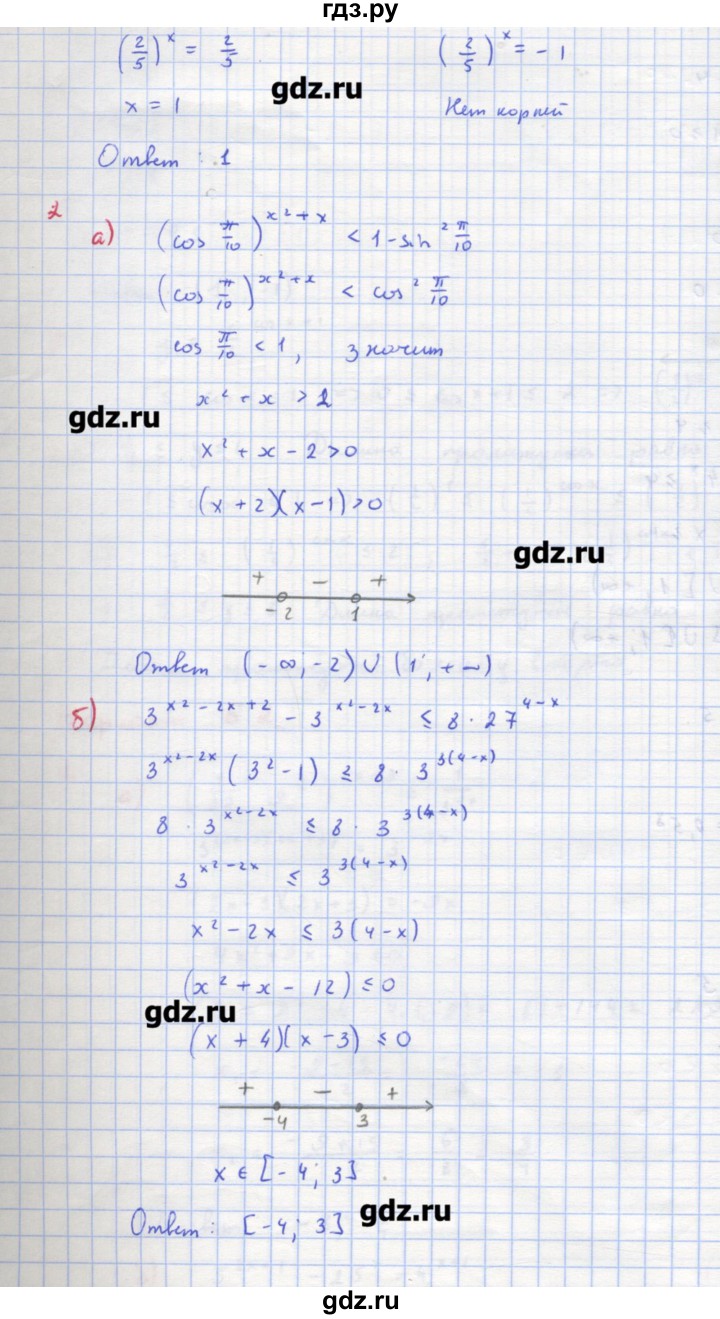 гдз.ру
(2/5)^x = 2/5 (2/5)^x = - 1
gdz.ru
x = 1 Нет корней
Ответ : 1
2
а) (cos π/10)^(x² + x) < 1 - sin² π/10
(cos π/10)^(x² + x) < cos² π/10
cos π/10 < 1, значит
x² + x > 2
gdz.ru
x² + x - 2 > 0
(x + 2)(x - 1) > 0
gdz.ru
+ - +
-2 1
Ответ (-∞; -2) ∪ (1; +∞)
б) 3^(x² - 2x + 2) - 3^(x² - 2x) ≤ 8 · 27^(4 - x)
3^(x² - 2x) (3² - 1) ≤ 8 · 3^(3(4 - x))
8 · 3^(x² - 2x) ≤ 8 · 3^(3(4 - x))
3^(x² - 2x) ≤ 3^(3(4 - x))
x² - 2x ≤ 3(4 - x)
(x² + x - 12) ≤ 0
gdz.ru
(x + 4)(x - 3) ≤ 0
+ - +
-4 3
x ∈ [-4; 3]
gdz.ru
Ответ : [-4; 3]
gdz.ru